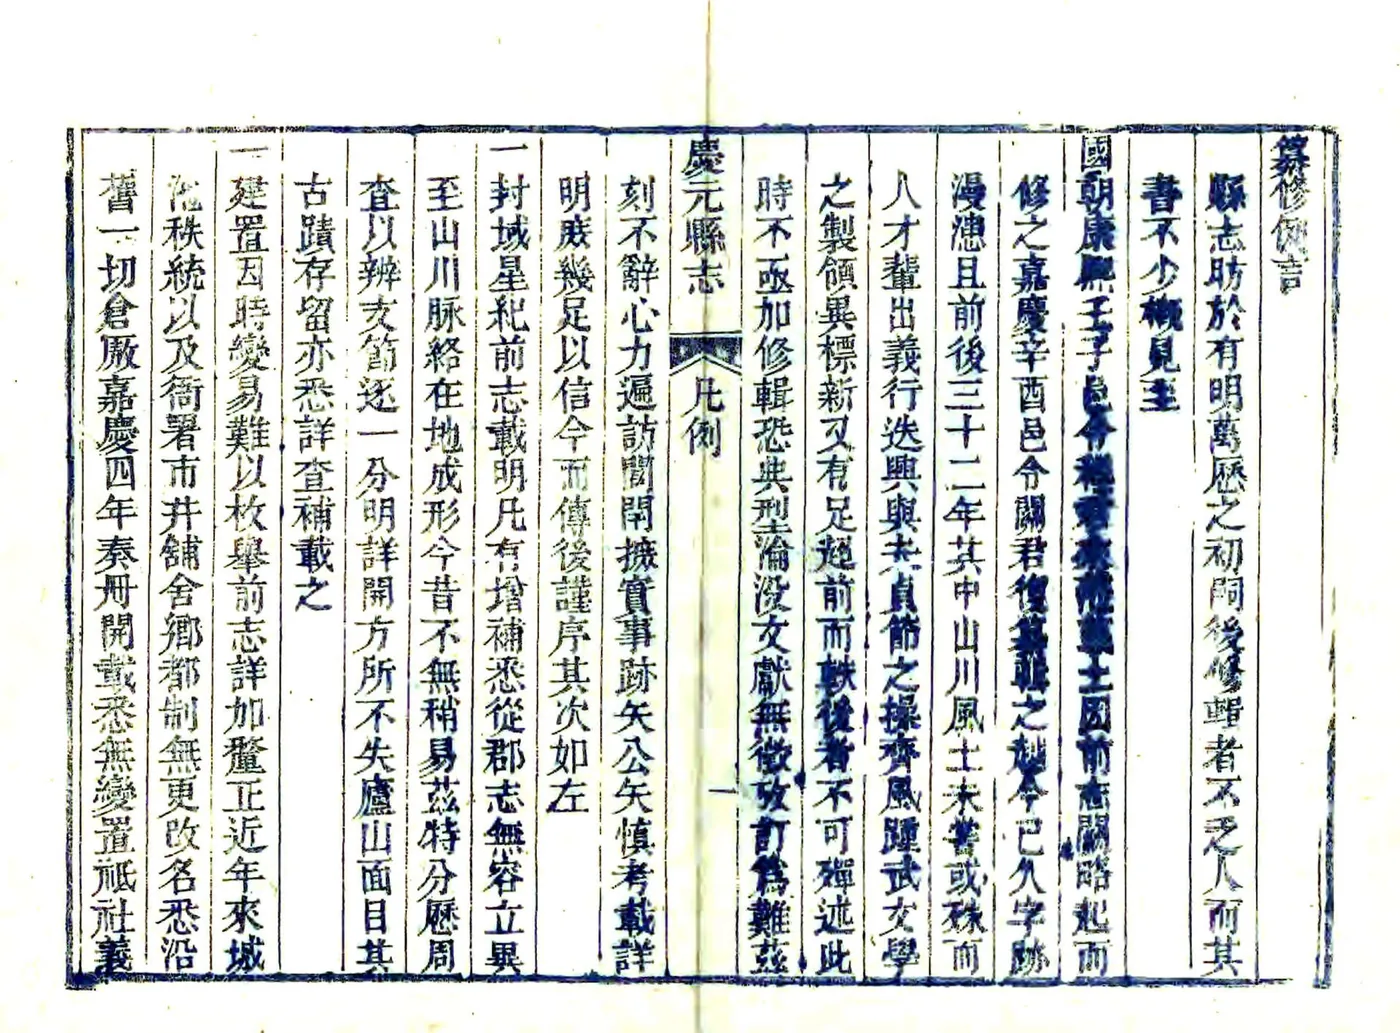 纂修例言
縣志昉於有明萬歷之初嗣後修輯者不乏人而其
書不少概見至
國朝康熙壬子邑令程君來蒞茲土因前志闕略起而
修之嘉慶辛酉邑令關君復纂輯之越今已久字跡
漫漶且前後三十二年其中山川風土未嘗或殊而
人才輩出義行迭興與夫貞節之操齊風踵武文學
之製領異標新又有足超前而軼後者不可殫述此
時不亟加修輯恐典型淪沒文獻無徵攷訂爲難茲
慶元縣志 凡例 一
刻不辭心力遍訪閭閈摭實事跡矢公矢慎考載詳
明庶幾足以信今而傳後謹序其次如左
一封域星紀前志載明凡有增補悉從郡志無容立異
至山川脉絡在地成形今昔不無稍易茲特分歷周
查以辨支節逐一分明詳開方所不失廬山面目其
古蹟存留亦悉詳查補載之
一建置因時變易難以枚舉前志詳加釐正近年來城
池秩統以及衙署市井舖舍鄉都制無更改名悉沿
舊一切倉厫嘉慶四年奏册開載悉無變置祗社義